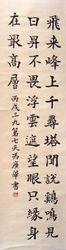 飛來峰上千尋塔聞說鷄鳴見
日昇不畏浮雲遮望眼只緣身
在最高層 丙戌三九第七天馮 華書